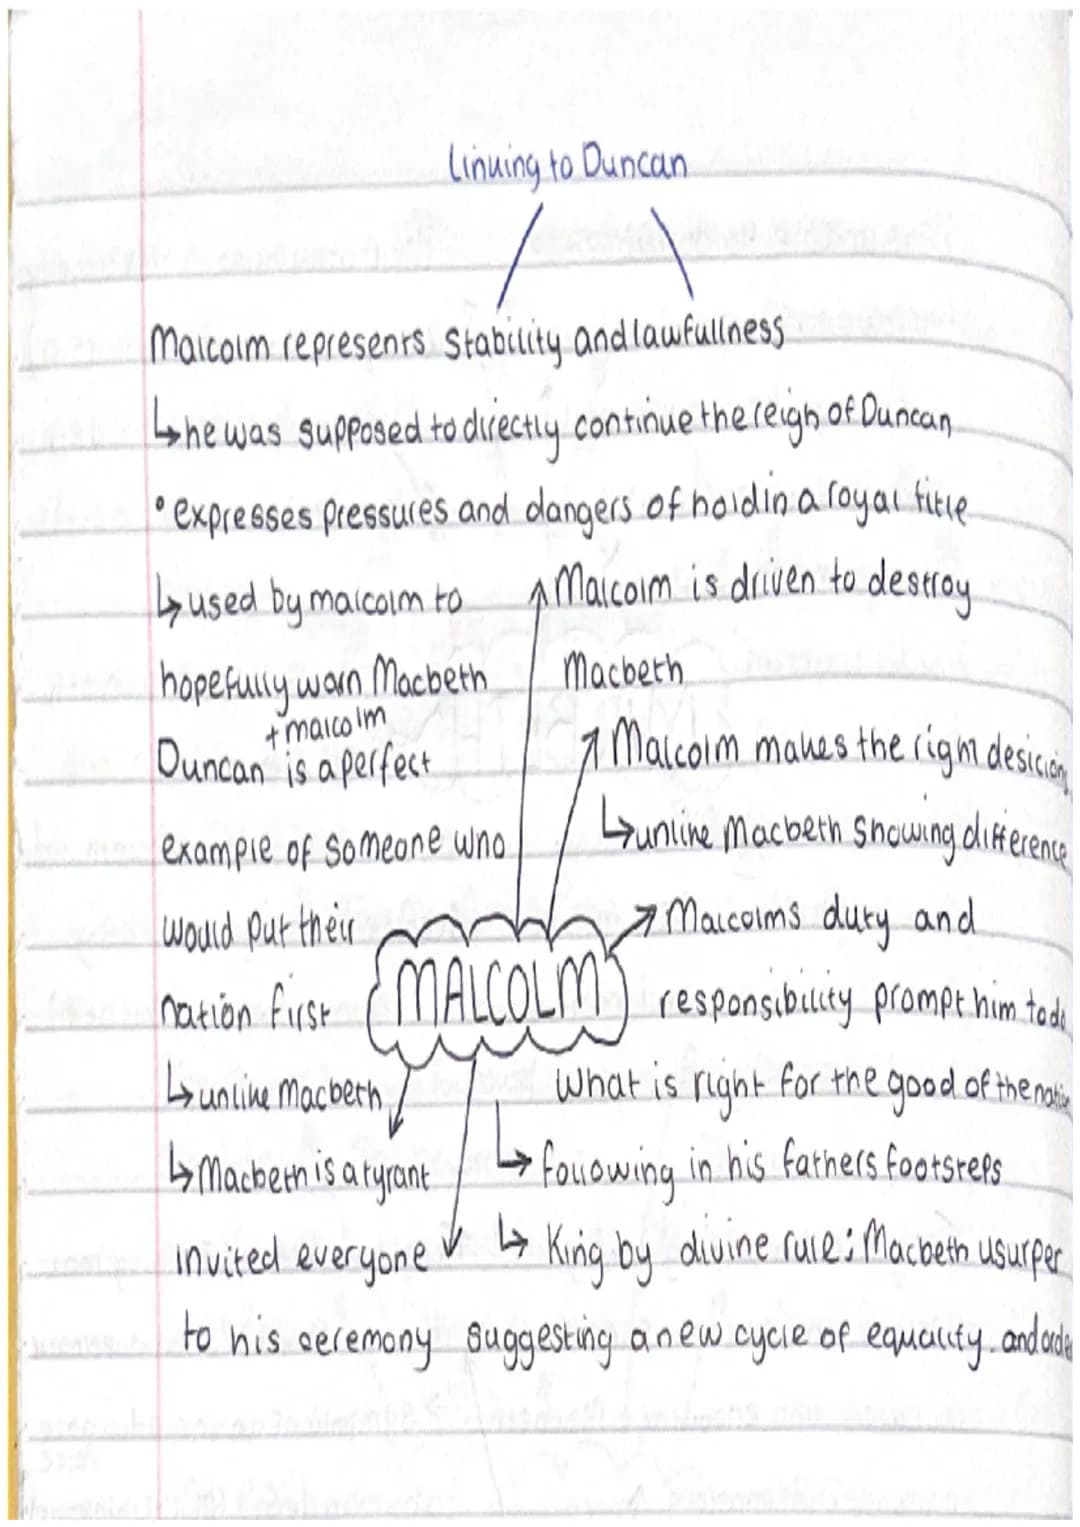 Linking to Duncan
Malcolm represents stability and lawfullness
↳ he was supposed to directly continue the reign of Duncan
• expresses pressures and dangers of holdin a royal title
↳ used by malcolm to
hopefully warn Macbeth
+ malcolm
Duncan is a perfect
example of someone who
would put their
nation first
↳ unlike Macbeth
↳ Macbeth is a tyrant
Malcolm is driven to destroy
Macbeth
Malcolm makes the right desicions
↳ unlike Macbeth showing difference
Malcolms duty and
responsibility prompt him to do
what is right for the good of the nation
↳ following in his fathers footsteps
↳ King by divine rule; Macbeth usurper
MALCOLM
invited everyone
to his ceremony suggesting a new cycle of equality. and order